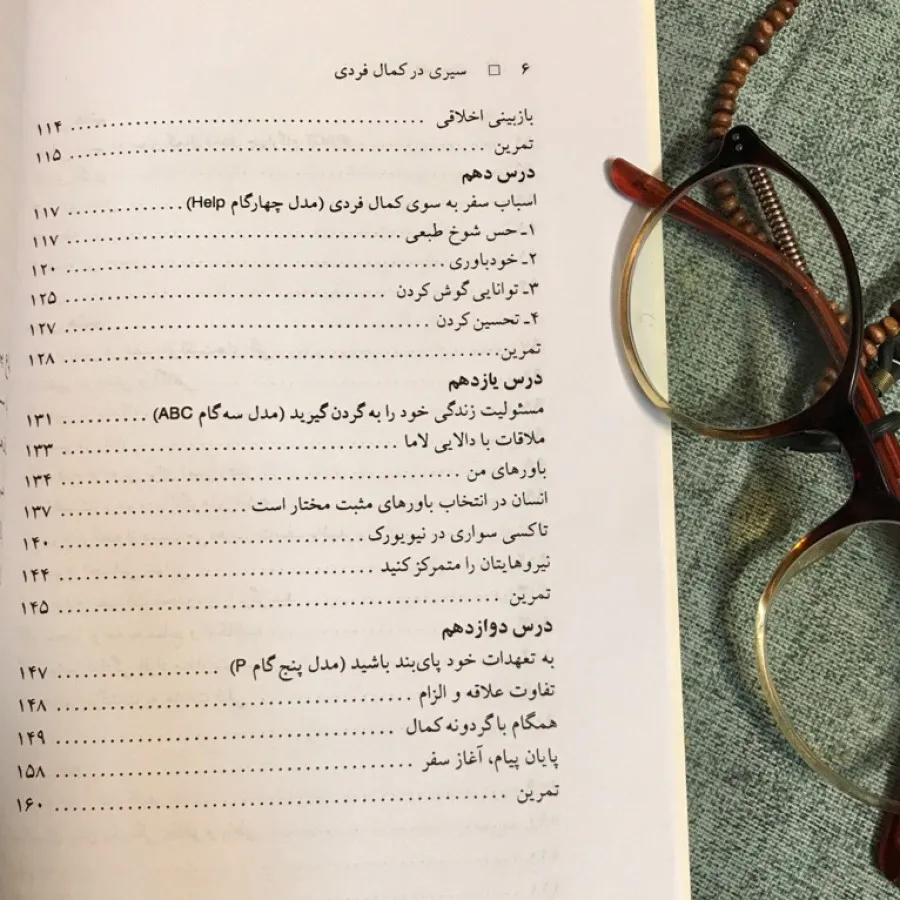 ۶ □ سیری در کمال فردی
بازبینی اخلاقی ........................ ۱۱۴
تمرین ........................ ۱۱۵
درس دهم
اسباب سفر به سوی کمال فردی (مدل چهارگام Help) ............ ۱۱۷
۱ـ حس شوخ طبعی ........................ ۱۱۷
۲ـ خودباوری ........................ ۱۲۰
۳ـ توانایی گوش کردن ........................ ۱۲۵
۴ـ تحسین کردن ........................ ۱۲۷
تمرین ........................ ۱۲۸
درس یازدهم
مسئولیت زندگی خود را به گردن گیرید (مدل سه گام ABC) .......... ۱۳۱
ملاقات با دالایی لاما ........................ ۱۳۳
باورهای من ........................ ۱۳۴
انسان در انتخاب باورهای مثبت مختار است .................. ۱۳۷
تاکسی سواری در نیویورک ........................ ۱۴۰
نیروهایتان را متمرکز کنید ........................ ۱۴۴
تمرین ........................ ۱۴۵
درس دوازدهم
به تعهدات خود پای‌بند باشید (مدل پنج گام P) ................ ۱۴۷
تفاوت علاقه و الزام ........................ ۱۴۸
همگام با گردونه کمال ........................ ۱۴۹
پایان پیام، آغاز سفر ........................ ۱۵۸
تمرین ........................ ۱۶۰